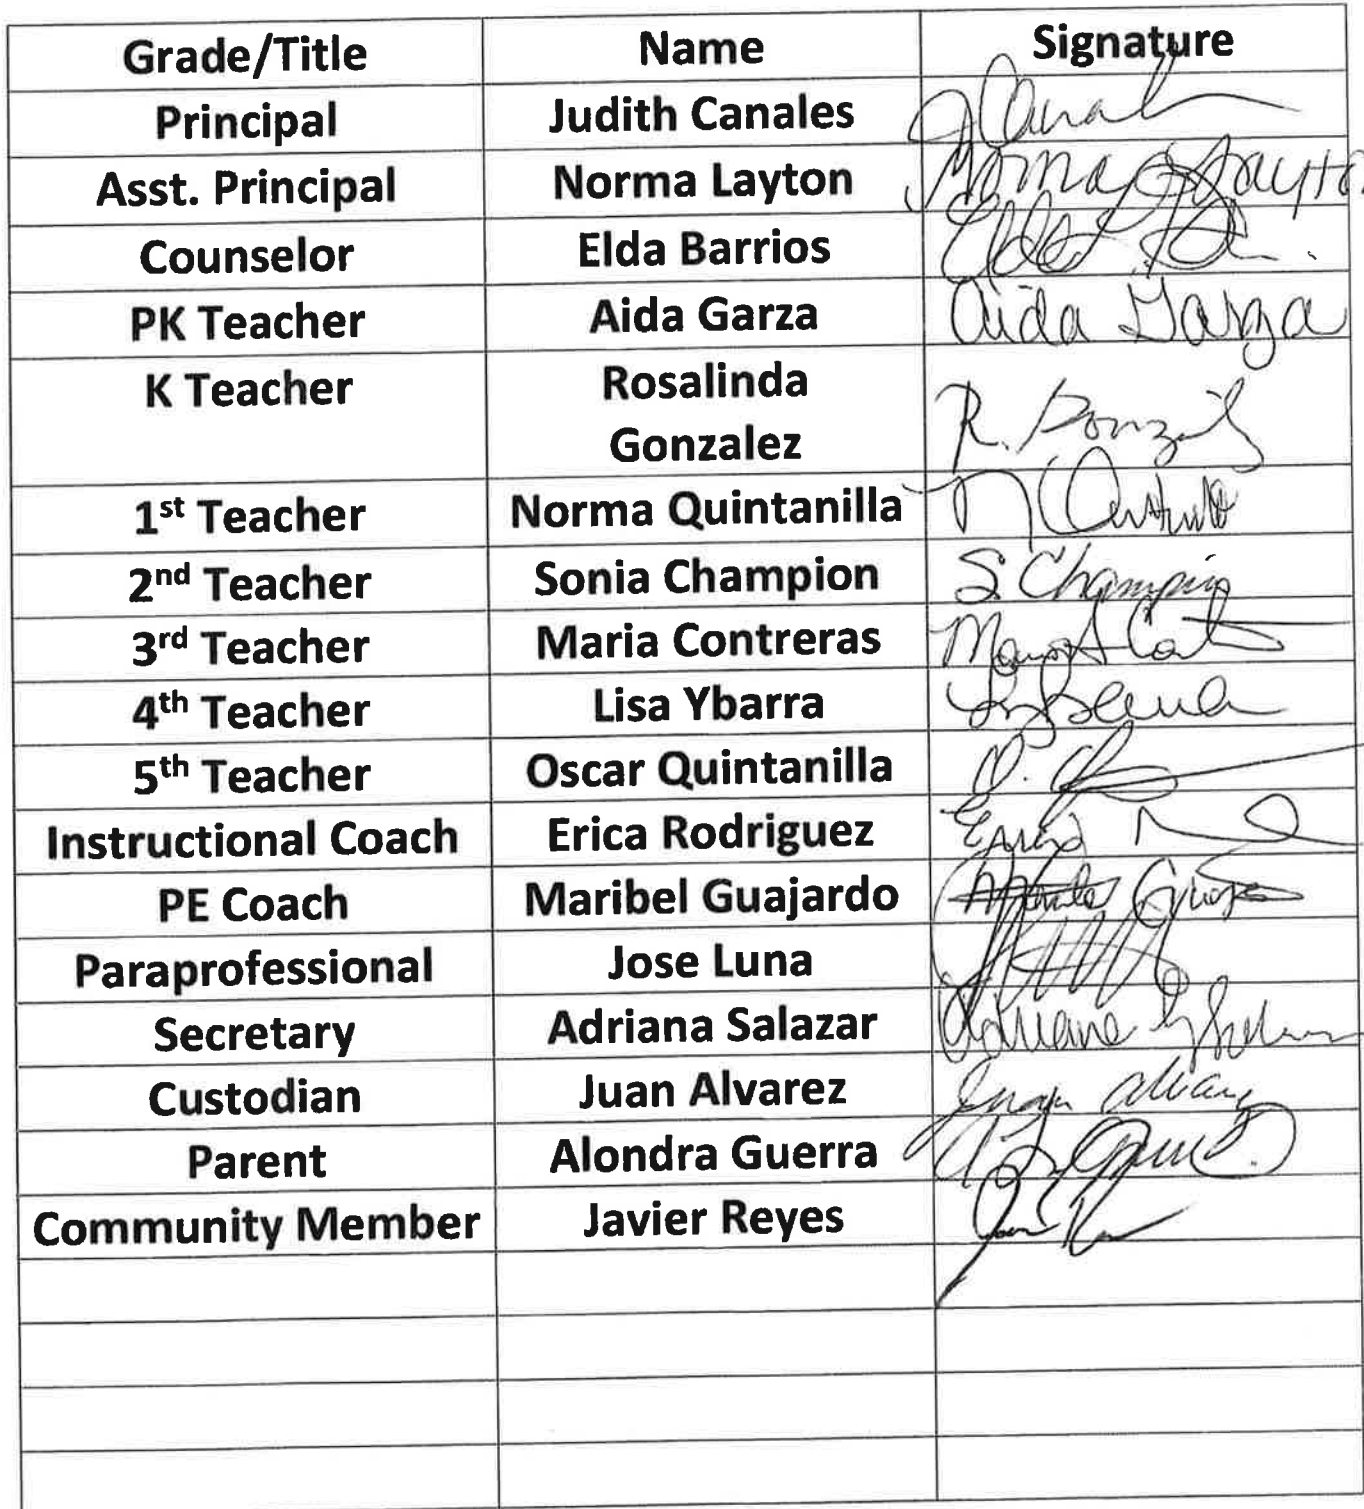 Grade/Title Name Signature
Principal Judith Canales
Asst. Principal Norma Layton Norma Layton
Counselor Elda Barrios
PK Teacher Aida Garza Aida Garza
K Teacher Rosalinda
Gonzalez R.
1st Teacher Norma Quintanilla N
2nd Teacher Sonia Champion S. Champion
3rd Teacher Maria Contreras
4th Teacher Lisa Ybarra
5th Teacher Oscar Quintanilla O.
Instructional Coach Erica Rodriguez Erica
PE Coach Maribel Guajardo
Paraprofessional Jose Luna
Secretary Adriana Salazar
Custodian Juan Alvarez Juan
Parent Alondra Guerra
Community Member Javier Reyes